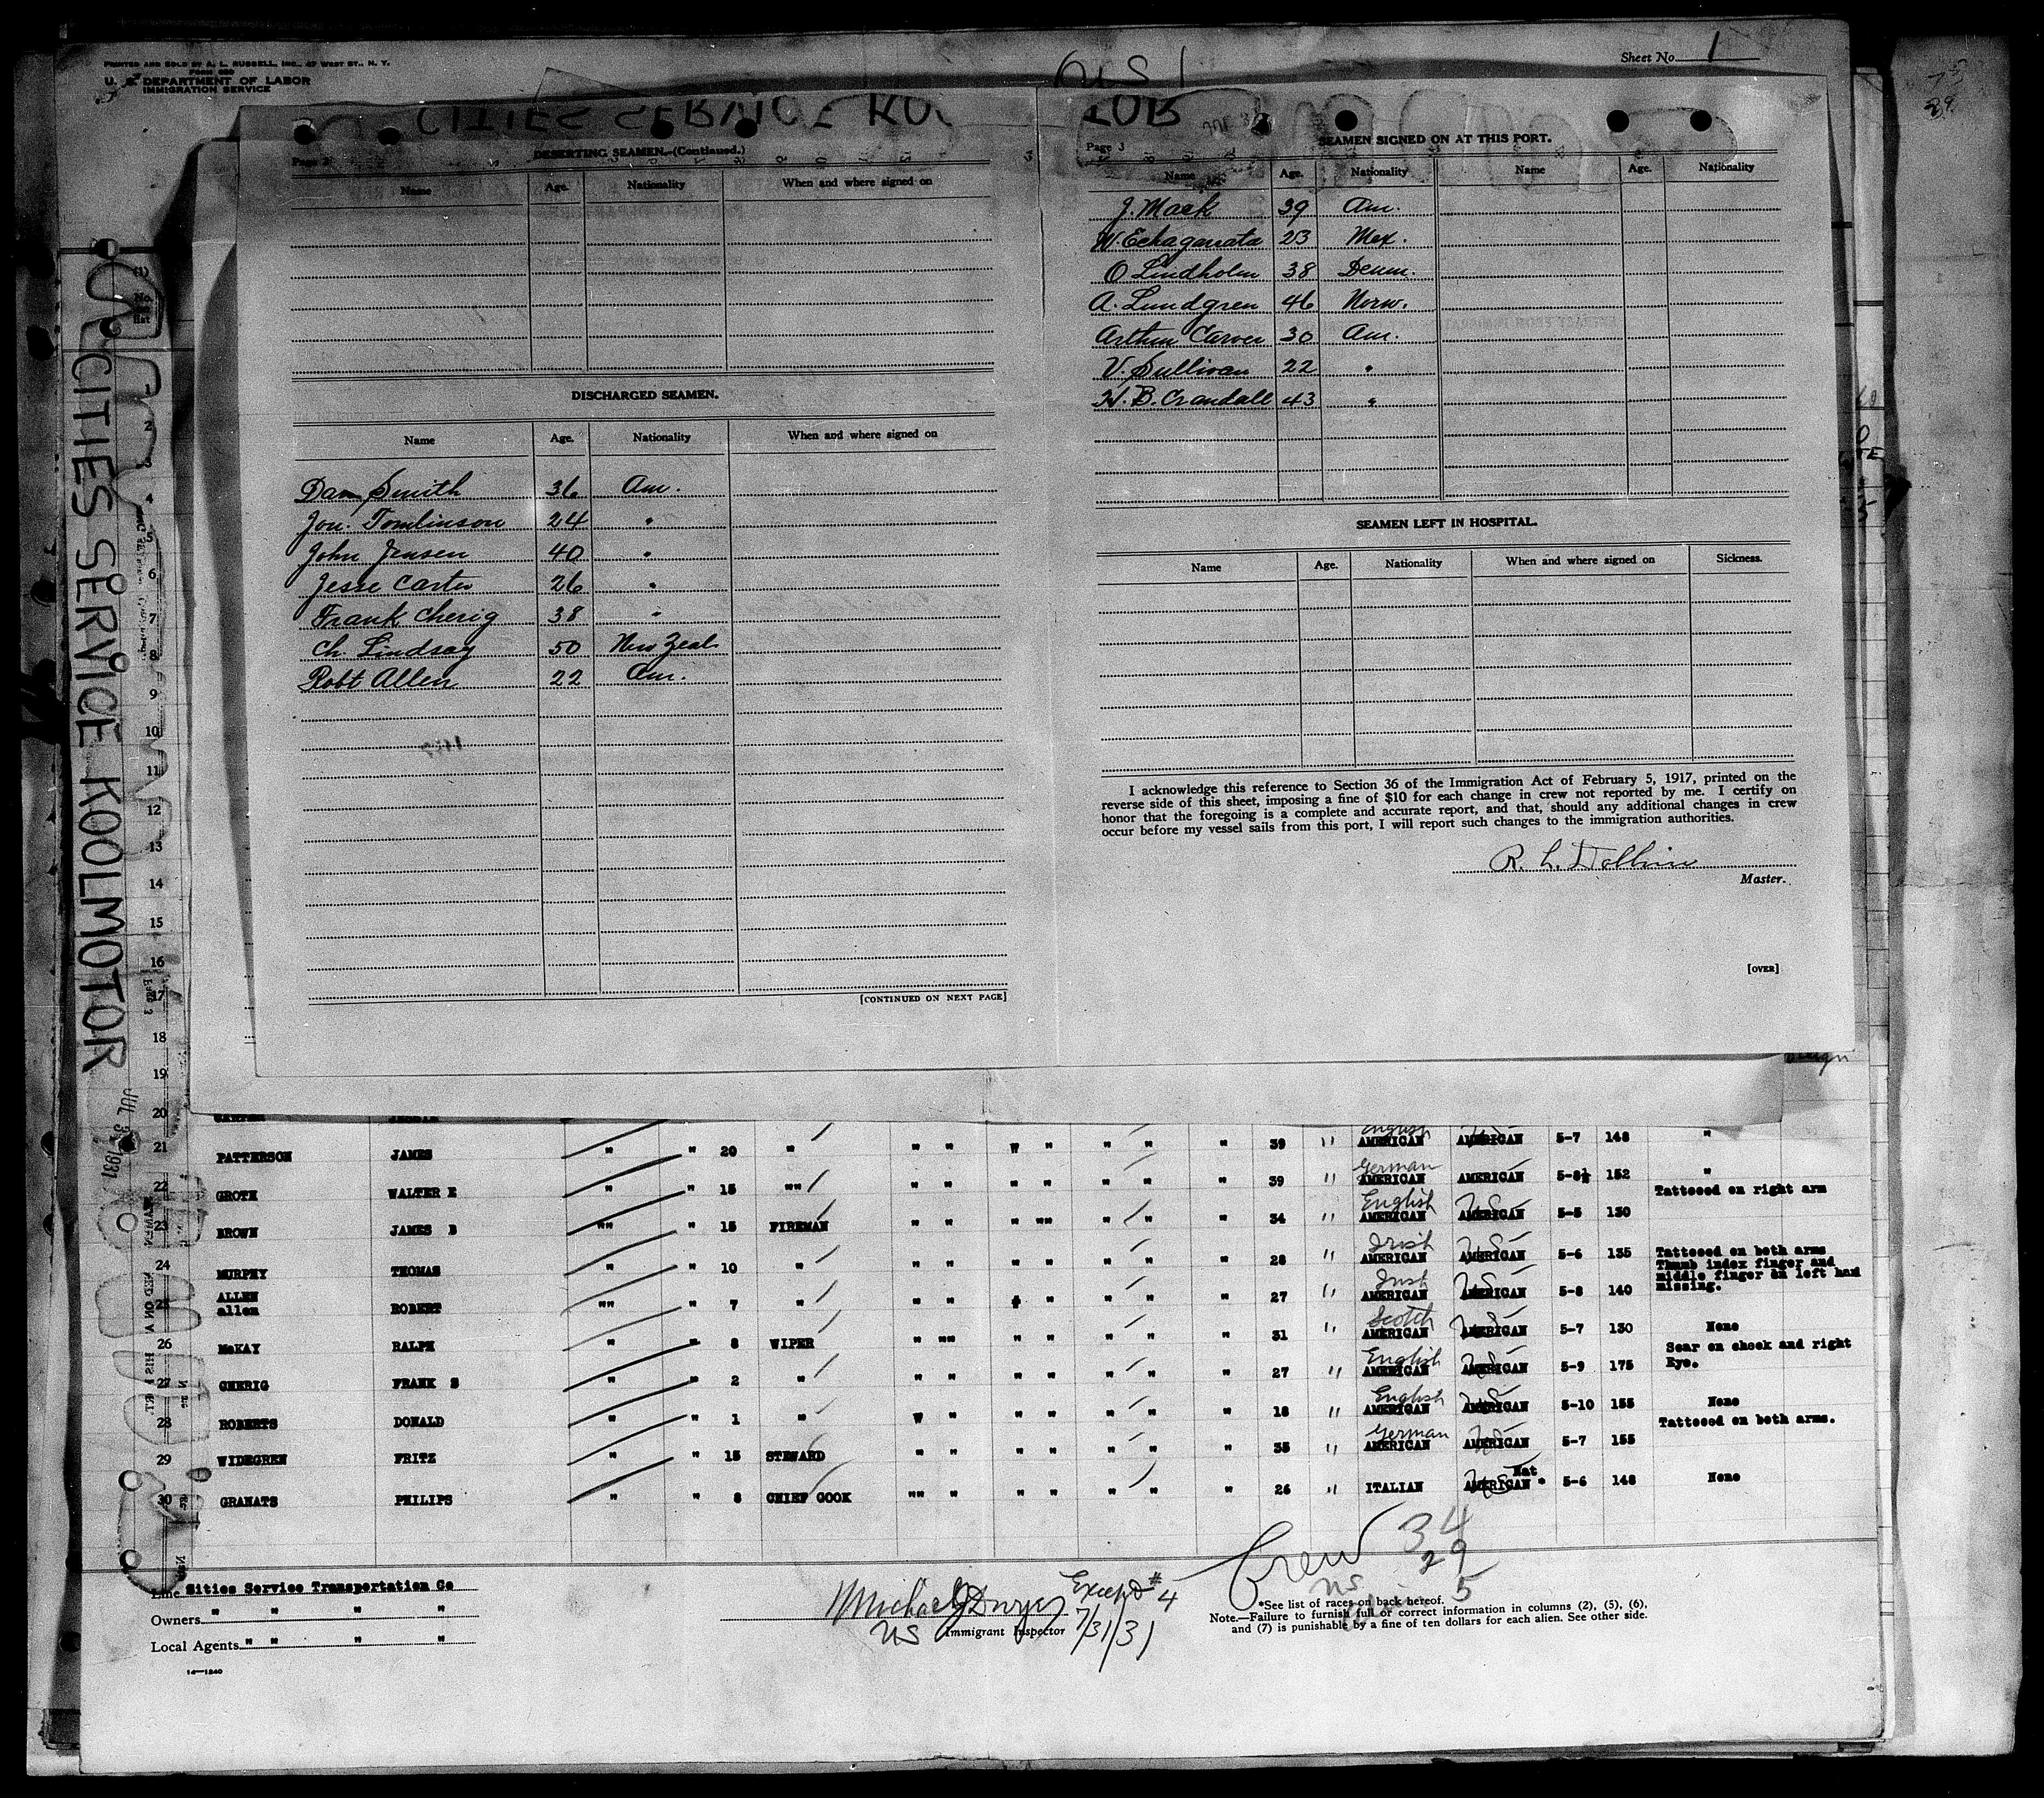 PRINTED AND SOLD BY A. L. RUSSELL, INC., 47 WEST ST., N. Y.
U. S. DEPARTMENT OF LABOR
IMMIGRATION SERVICE
Sheet No. 1
US 1
CITIES SERVICE KOOLMOTOR
JUL 31 1931
Page 2
DESERTING SEAMEN.—(Continued.)
Name Age. Nationality When and where signed on
DISCHARGED SEAMEN.
Name Age. Nationality When and where signed on
Dan Smith 36 Am.
Jon. Tomlinson 24 "
John Jensen 40 "
Jesse Carter 26 "
Frank Cherig 38 "
Ch. Lindsay 50 New Zeal.
Robt Allen 22 Am.
[CONTINUED ON NEXT PAGE]
Page 3
SEAMEN SIGNED ON AT THIS PORT.
Name Age. Nationality Name Age. Nationality
J. Mack 39 Am.
W. Echaganata 23 Mex.
O Lindholm 38 Denm.
A. Lundgren 46 Norw.
Arthur Carver 30 Am.
V. Sullivan 22 "
H. B. Crandall 43 "
SEAMEN LEFT IN HOSPITAL.
Name Age. Nationality When and where signed on Sickness.
I acknowledge this reference to Section 36 of the Immigration Act of February 5, 1917, printed on the
reverse side of this sheet, imposing a fine of $10 for each change in crew not reported by me. I certify on
honor that the foregoing is a complete and accurate report, and that, should any additional changes in crew
occur before my vessel sails from this port, I will report such changes to the immigration authorities.
R. L.
Master.
[OVER]
21 PATTERSON JAMES " " 20 " " " W " " " " 39 " English AMERICAN US AMERICAN 5-7 148 "
22 GROTH WALTER E " " 15 "" " " " " " " " 39 " German AMERICAN AMERICAN 5-8½ 152 "
Tattooed on right arm
23 BROWN JAMES B "" " 15 FIREMAN " " " "" " " " 34 " English AMERICAN US AMERICAN 5-5 130
24 MURPHY THOMAS " " 10 " " " " " " " " 28 " Irish AMERICAN US AMERICAN 5-6 135 Tattooed on both arms
Thumb index finger and
middle finger on left hand
missing.
25 ALLEN allen ROBERT "" " 7 " " " " " " " 27 " Irish AMERICAN US AMERICAN 5-8 140
26 McKAY RALPH " " 8 WIPER " "" " " " " " 31 " Scotch AMERICAN US AMERICAN 5-7 130 None
Scar on cheek and right
Eye.
27 CHERIG FRANK S " " 2 " " " " " " " " 27 " English AMERICAN US AMERICAN 5-9 175
28 ROBERTS DONALD " " 1 " W " " " " " " 18 " English AMERICAN US AMERICAN 5-10 155 None
Tattooed on both arms.
29 WIDEGREN FRITZ " " 15 STEWARD " " " " " " " 35 " German AMERICAN US AMERICAN 5-7 155
30 GRANATS PHILIPS " " 8 CHIEF COOK "" " " " " " " 26 " ITALIAN US AMERICAN Nat * 5-6 148 None
Crew 34
US 29
5
Line Cities Service Transportation Co
Owners " " " "
Local Agents " " " "
14—1240
Michael J Dwyer Except #4
US Immigrant Inspector 7/31/31
*See list of races on back hereof.
Note.—Failure to furnish full or correct information in columns (2), (5), (6),
and (7) is punishable by a fine of ten dollars for each alien. See other side.